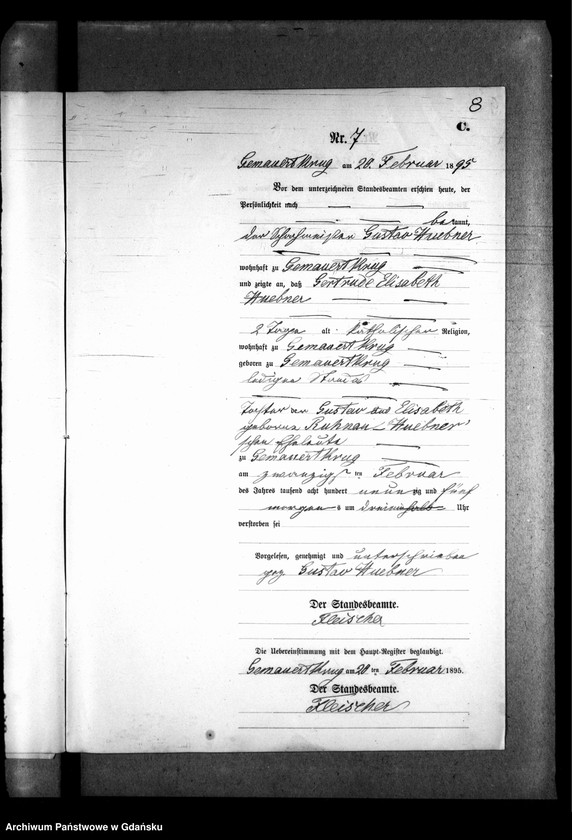 8
C.
Nr. 7
Gemauert Krug am 20. Februar 1895
Vor dem unterzeichneten Standesbeamten erschien heute, der
Persönlichkeit nach
bekannt,
der Gustav Huebner
wohnhaft zu Gemauert Krug
und zeigte an, daß Gertrude Elisabeth
Huebner
2 Tage alt, katholischer Religion,
wohnhaft zu Gemauert Krug
geboren zu Gemauert Krug
ledigen Standes
Tochter der Gustav und Elisabeth
geborene Ruhnau - Huebner'
schen Eheleute
zu Gemauert Krug
am zwanzigsten Februar
des Jahres tausend acht hundert neunzig und fünf
morgens um Uhr
verstorben sei
Vorgelesen, genehmigt und unterschrieben
gez. Gustav Huebner
Der Standesbeamte.
Fleischer
Die Uebereinstimmung mit dem Haupt-Register beglaubigt.
Gemauert Krug am 20 ten Februar 1895.
Der Standesbeamte.
Fleischer
Archiwum Państwowe w Gdańsku